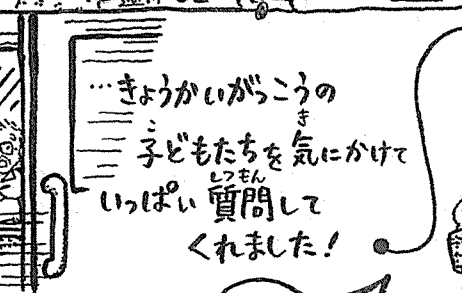 …きょうかいがっこうの
子どもたちを気にかけて
いっぱい質問して
くれました!